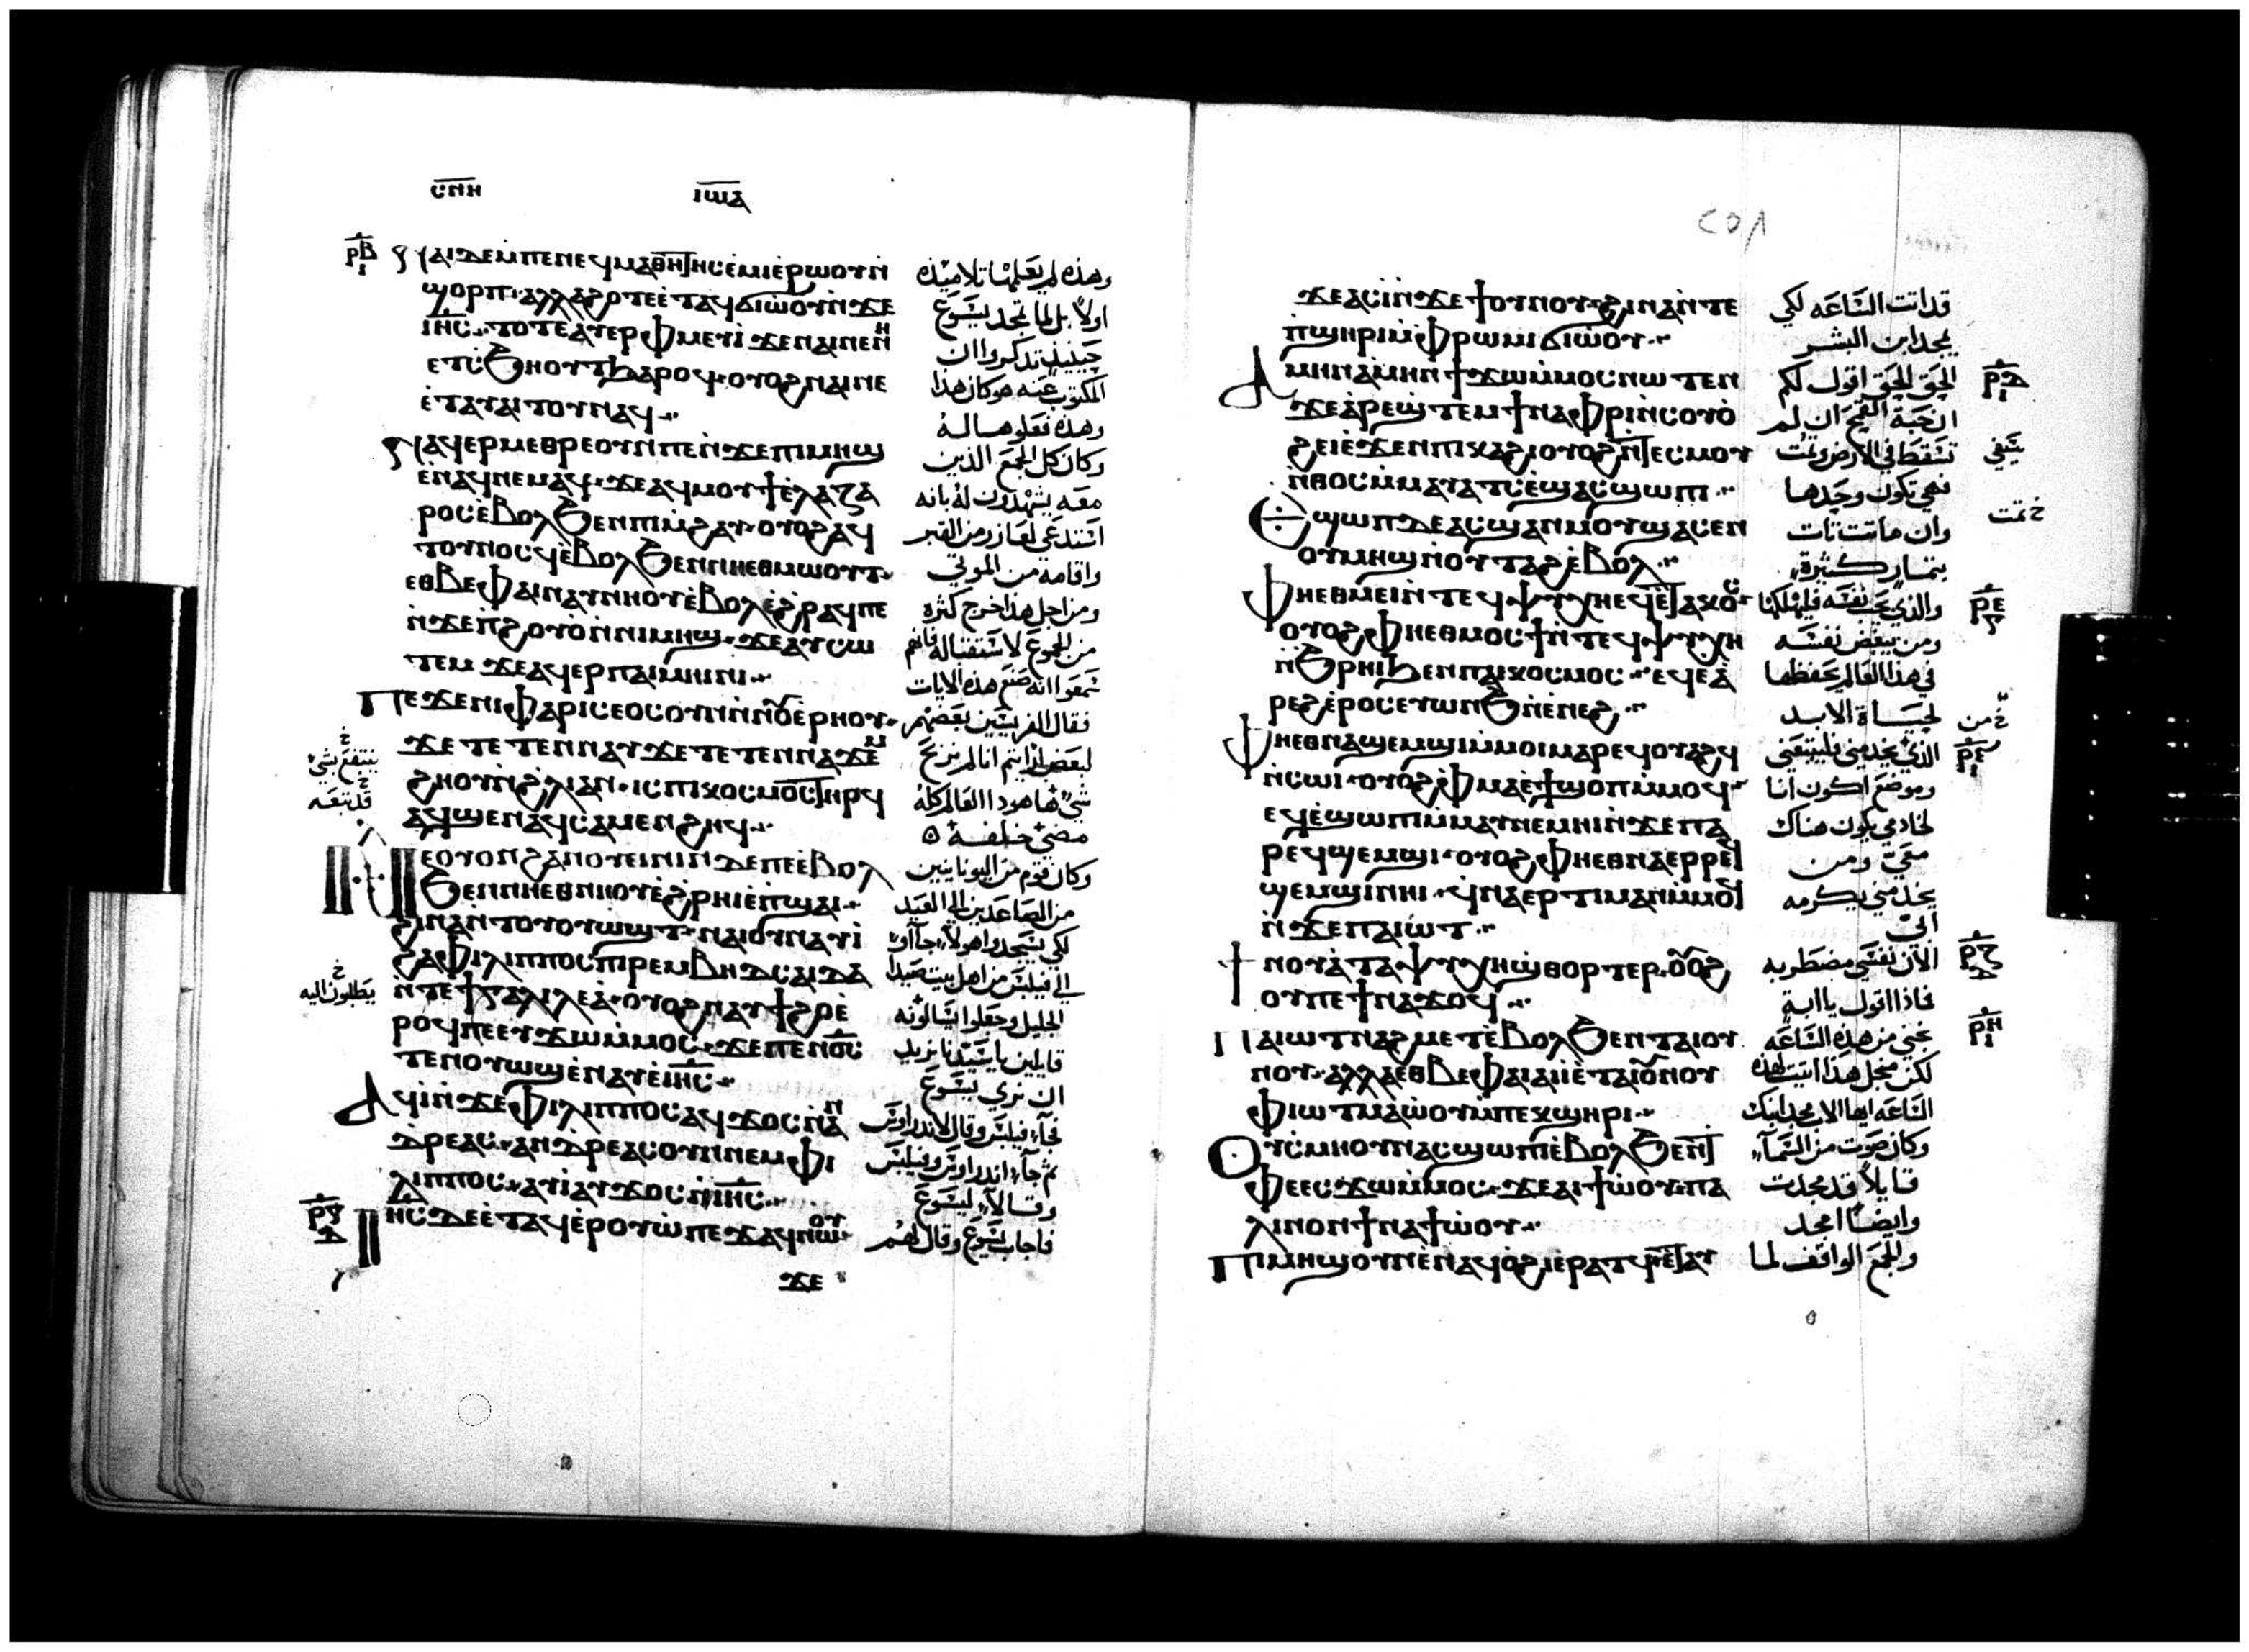 ⲥⲛⲏ ⲓⲱⲁ
ⲣⲃ ⲛⲁⲓ ⲇⲉ ⲙⲡⲉ ⲛⲉϥⲙⲁⲑⲏⲧⲏⲥ ⲉⲙⲓ ⲉⲣⲱⲟⲩ ⲛ
ϣⲟⲣⲡ ⲁⲗⲗⲁ ϩⲟⲧⲉ ⲉⲧⲁϥϭⲓⲱⲟⲩ ⲛϫⲉ
ⲓⲏⲥ ⲧⲟⲧⲉ ⲁⲩⲉⲣⲫⲙⲉⲩⲓ ϫⲉ ⲛⲁⲓ ⲛⲉⲛⲏ
ⲉⲧⲥϧⲏⲟⲩⲧ ϧⲁⲣⲟϥ ⲟⲩⲟϩ ⲛⲁⲓ ⲛⲉ
ⲉⲧⲁⲩⲁⲓⲧⲟⲩ ⲛⲁϥ
ⲛⲁϥⲉⲣⲙⲉⲑⲣⲉ ⲟⲩⲛ ⲡⲉ ⲛϫⲉ ⲡⲓⲙⲏϣ
ⲉⲛⲁϥⲛⲉⲙⲁϥ ϫⲉ ⲁϥⲙⲟⲩϯ ⲉⲗⲁⲍⲁ
ⲣⲟⲥ ⲉⲃⲟⲗ ϧⲉⲛ ⲡⲓⲙϩⲁⲩ ⲟⲩⲟϩ ⲁϥ
ⲧⲟⲩⲛⲟⲥϥ ⲉⲃⲟⲗ ϧⲉⲛ ⲛⲏⲉⲑⲙⲱⲟⲩⲧ
ⲉⲑⲃⲉ ⲫⲁⲓ ⲛⲁⲩⲛⲏⲟⲩ ⲉⲃⲟⲗ ⲉϩⲣⲁϥ ⲡⲉ
ⲛϫⲉ ⲡϩⲟⲩⲟ ⲛⲛⲓⲙⲏϣ ϫⲉ ⲁⲩⲥⲱ
ⲧⲉⲙ ϫⲉ ⲁϥⲉⲣ ⲡⲁⲓⲙⲏⲓⲛⲓ
ⲡⲉϫⲉ ⲛⲓⲫⲁⲣⲓⲥⲉⲟⲥ ⲟⲩⲛ ⲛⲛⲟⲩⲉⲣⲏⲟⲩ
ϫⲉ ⲧⲉⲧⲉⲛⲛⲁⲩ ϫⲉ ⲧⲉⲧⲉⲛⲛⲁϫⲉⲙ
ϩⲏⲟⲩ ⲛϩⲗⲓ ⲁⲛ ⲓⲥ ⲡⲓⲕⲟⲥⲙⲟⲥ ⲧⲏⲣϥ
ⲁϥϣⲉⲛⲁϥ ⲥⲁⲙⲉⲛϩⲏϥ
ⲛⲉ ⲟⲩⲟⲛ ϩⲁⲛⲟⲩⲉⲓⲛⲓⲛ ⲇⲉ ⲡⲉ ⲉⲃⲟⲗ
ϧⲉⲛ ⲛⲏⲉⲑⲛⲏⲟⲩ ⲉϩⲣⲏⲓ ⲉⲡϣⲁⲓ
ϩⲓⲛⲁ ⲛⲧⲟⲩⲟⲩⲱϣⲧ ⲛⲁⲓ ⲟⲩⲛ ⲁⲩⲓ
ϩⲁ ⲫⲓⲗⲓⲡⲡⲟⲥ ⲡⲓⲣⲉⲙⲃⲏⲇⲥⲁⲓⲇⲁ
ⲛⲧⲉ ϯⲅⲁⲗⲓⲗⲉⲁ ⲟⲩⲟϩ ⲛⲁⲩϯϩⲟ ⲉ
ⲣⲟϥ ⲡⲉ ⲉⲩϫⲱ ⲙⲙⲟⲥ ϫⲉ ⲡⲉⲛⲟⲥ
ⲧⲉⲛⲟⲩⲱϣ ⲉⲛⲁⲩ ⲉⲓⲏⲥ
ⲁϥⲓ ⲛϫⲉ ⲫⲓⲗⲓⲡⲡⲟⲥ ⲁϥϫⲟⲥ ⲛⲁⲛ
ⲇⲣⲉⲁⲥ ⲁⲛⲇⲣⲉⲁⲥ ⲟⲩⲛ ⲛⲉⲙ ⲫⲓ
ⲗⲓⲡⲡⲟⲥ ⲁⲩⲓ ⲁⲩϫⲟⲥ ⲛⲓⲏⲥ
ⲣⲅ ⲓⲏⲥ ⲇⲉ ⲉⲧⲁϥⲉⲣⲟⲩⲱ ⲡⲉϫⲁϥ ⲛⲱⲟⲩ
ϫⲉ
وهذه لم يعلمها تلاميذه
اولا بل لما تمجد يسوع
حينيذ تذكروا ان
المكتوب عنه هو كان هذا
وهذه فعلوها له
وكان كل الجمع الذين
معه يشهدون له بانه
استدعى لعازر من القبر
واقامه من الموتى
ومن اجل هذا خرج كثره
من الجموع لاستقباله فانهم
سمعوا انه صنع هذه الايات
فقال الفريسيين بعضهم
لبعض ارايتم انا لم نربح
شي ها هوذا العالم كله
مضى خلفه
وكان قوم من اليونانيين
من الصاعدين الى العيد
لكي يسجدوا هولاء جاآوا
الى فيلبس من اهل بيت صيدا
الجليل وجعلوا يسالونه
قايلين يا سيدنا نريد
ان نرى يسوع
فجآء فيلبس وقال لاندراوس
ثم جآء اندراوس وفيلبس
وقالا ليسوع
فاجاب يسوع وقال لهم
ينتفع بشي
قد تبعه
يطلبون اليه
٢٥٨
ϫⲉ ⲁⲥⲓ ⲛϫⲉ ϯⲟⲩⲛⲟⲩ ϩⲓⲛⲁ ⲛⲧⲉ
ⲡϣⲏⲣⲓ ⲙⲫⲣⲱⲙⲓ ϭⲓⲱⲟⲩ
ⲁⲙⲏⲛ ⲁⲙⲏⲛ ϯϫⲱ ⲙⲙⲟⲥ ⲛⲱⲧⲉⲛ
ϫⲉ ⲁⲣⲉϣⲧⲉⲙ ϯⲛⲁⲫⲣⲓ ⲛⲥⲟⲩⲟ
ϩⲉⲓ ⲉϫⲉⲛ ⲡⲓⲕⲁϩⲓ ⲟⲩⲟϩ ⲛⲧⲉⲥⲙⲟⲩ
ⲛⲑⲟⲥ ⲙⲙⲁⲩⲁⲧⲥ ⲉϣⲁⲥϣⲱⲡⲓ
ⲉϣⲱⲡ ⲇⲉ ⲁⲥϣⲁⲛⲙⲟⲩ ϣⲁⲥⲉⲛ
ⲟⲩⲙⲏϣ ⲛⲟⲩⲧⲁϩ ⲉⲃⲟⲗ
ⲫⲏⲉⲑⲙⲉⲓ ⲛⲧⲉϥⲯⲩⲭⲏ ⲉϥⲉⲧⲁⲕⲟⲥ
ⲟⲩⲟϩ ⲫⲏⲉⲑⲙⲟⲥϯ ⲛⲧⲉϥⲯⲩⲭⲏ
ⲛϧⲣⲏⲓ ϧⲉⲛ ⲡⲁⲓⲕⲟⲥⲙⲟⲥ ⲉϥⲉⲁ
ⲣⲉϩ ⲉⲣⲟⲥ ⲉⲩⲱⲛϧ ⲛⲉⲛⲉϩ
ⲫⲏⲉⲑⲛⲁϣⲉⲙϣⲓ ⲙⲙⲟⲓ ⲙⲁⲣⲉϥⲟⲩⲁϩϥ
ⲛⲥⲱⲓ ⲟⲩⲟϩ ⲫⲙⲁ ⲉϯϣⲟⲡ ⲙⲙⲟϥ
ⲉϥⲉϣⲱⲡⲓ ⲙⲙⲁⲩ ⲛⲉⲙⲏⲓ ⲛϫⲉ ⲡⲁ
ⲣⲉϥϣⲉⲙϣⲓ ⲟⲩⲟϩ ⲫⲏⲉⲑⲛⲁⲉⲣⲣⲉϥ
ϣⲉⲙϣⲓ ⲛⲏⲓ ϥⲛⲁⲉⲣⲧⲓⲙⲁⲛ ⲙⲙⲟϥ
ⲛϫⲉ ⲡⲁⲓⲱⲧ
ϯⲛⲟⲩ ⲁ ⲧⲁⲯⲩⲭⲏ ϣⲑⲟⲣⲧⲉⲣ ⲟⲩⲟϩ
ⲟⲩ ⲡⲉϯⲛⲁϫⲟϥ
ⲡⲁⲓⲱⲧ ⲛⲁϩⲙⲉⲧ ⲉⲃⲟⲗ ϧⲉⲛ ⲧⲁⲓⲟⲩ
ⲛⲟⲩ ⲁⲗⲗⲁ ⲉⲑⲃⲉ ⲫⲁⲓ ⲁⲓⲓ ⲉⲧⲁⲓⲟⲩⲛⲟⲩ
ⲫⲓⲱⲧ ⲙⲁⲱⲟⲩ ⲙⲡⲉⲕϣⲏⲣⲓ
ⲟⲩⲥⲙⲏ ⲟⲩⲛ ⲁⲥϣⲱⲡⲓ ⲉⲃⲟⲗ ϧⲉⲛ ⲧ
ⲫⲉ ⲉⲥϫⲱ ⲙⲙⲟⲥ ϫⲉ ⲁⲓϯⲱⲟⲩ ⲡⲁ
ⲗⲓⲛ ⲟⲛ ϯⲛⲁϯⲱⲟⲩ
ⲡⲓⲙⲏϣ ⲟⲩⲛ ⲉⲛⲁϥⲟϩⲓ ⲉⲣⲁⲧϥ ⲛⲉⲧⲁⲩ
قد اتت الساعه لكي
يمجد ابن البشر
الحق الحق اقول لكم
ان حبة القمح ان لم
تسقط في الارض وتمت
فهي تكون وحدها
وان ماتت تات
بثمار كثيرة
والذي يحب نفسه فليهلكها
ومن يبغض نفسه
في هذا العالم يحفظها
لحياة الابد
الذي يخدمني فليتبعني
وموضع اكون انا
لخادمي يكون هناك
معي ومن
يخدمني يكرمه
ابي
الان نفسي مضطربه
فاذا اقول يا ابة
نجني من هذه الساعه
لكن من اجل هذا اتيت لهذه
الساعه ايها الاب مجد ابنك
وكان صوت من السمآء
قايلا قد مجدت
وايضا امجد
والجمع الواقف لما
ⲣⲇ
ⲣⲉ
ⲣⲋ
ⲣⲍ
ⲣⲏ